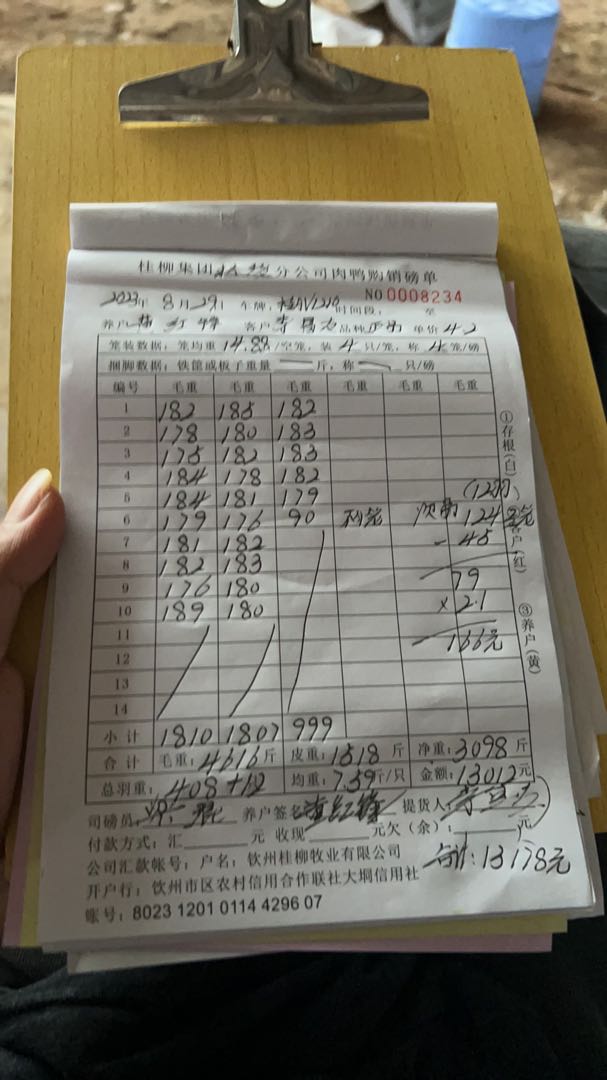 桂柳集团分公司肉鸭购销磅单
2023年 8月29日 车牌: 时间段: 至 NO 0008234
养户 客户 品种 单价 4.2
笼装数据: 笼均重 14.88/空笼, 装 4 只/笼, 称 4 笼/磅
捆脚数据: 铁筐或板子重量 — 斤, 称 — 只/磅
编号 毛重 毛重 毛重 毛重 毛重 毛重
1 182 185 182
2 178 180 183
3 175 182 183
4 184 178 182
5 184 181 179 (12只)
6 179 176 90 两笼 次鸭 124
7 181 182 - 45
8 182 183
9 176 180 79
10 189 180 × 2.1
11 166元
12
13
14
小计 1810 1807 999
合计 毛重: 4616斤 皮重: 1518 斤 净重: 3098 斤
总羽重: 408+12 均重: 7.59斤/只 金额: 13012元
司磅员: 养户签名 提货人:
付款方式: 汇 元 收现 元欠(余): 元
公司汇款帐号: 户名: 钦州桂柳牧业有限公司 合计: 13178元
开户行: 钦州市区农村信用合作联社大垌信用社
账号: 8023 1201 0114 4296 07
①存根(白)
客户(红)
③养户(黄)